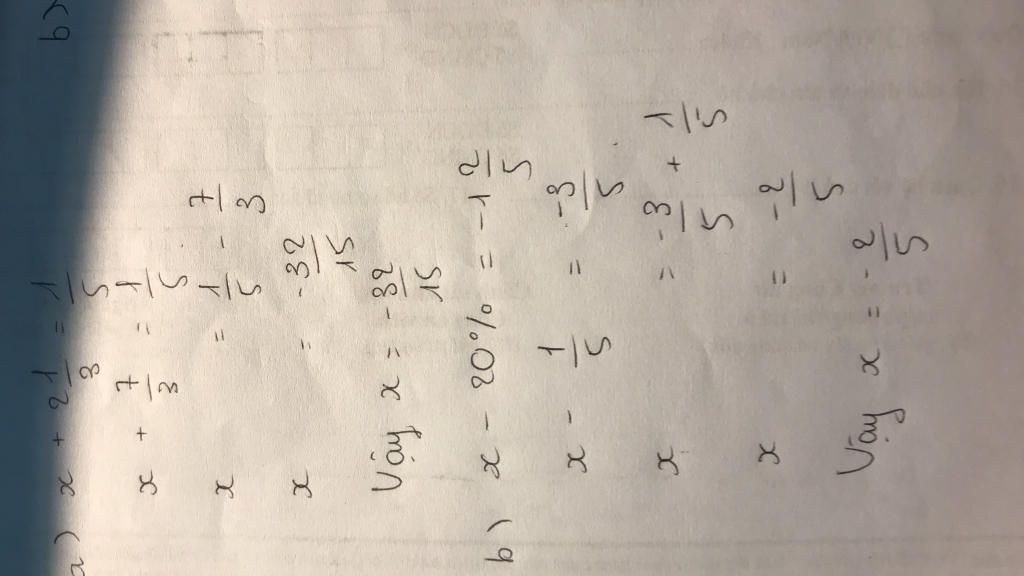 a) x + 2 1/3 = 1/5
x + 7/3 = 1/5
x = 1/5 - 7/3
x = -32/15
Vậy x = -32/15
b) x - 20% = -1 2/5
x - 1/5 = -3/5
x = -3/5 + 1/5
x = -2/5
Vậy x = -2/5
b)